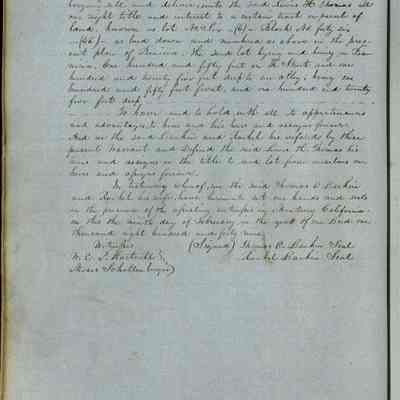 bargain sell and deliver unto the said Lewis H. Thomas all
our right title and interest to a certain tract or parcel of
land, known as lot No Six -(6)- Block No forty six
-(46)- as laid down and numbered as above in the pres-
ent plan of Benicia. The said lot lying and being in the
One hundred and fifty feet on H Street and one
hundred and twenty five feet deep to an alley; being one
hundred and fifty feet front, and one hundred and twenty
five feet deep
To have and to hold with all the appurtenances
and advantages to him and his heirs and assigns forever.
And we the said Larkin and Rachel his wife do by these
presents Warrant and Defend the said Lewis H. Thomas his
heirs and assigns in the title to said lot from ourselves our
heirs and assigns forever.
In testimony whereof, we the said Thomas O. Larkin
and Rachel his wife, have hereunto set our hands and seals
in the presence of the witnesses in Monterey California
on this the ninth day of February in the year of our Lord one
thousand eight hundred and forty nine
Witnesses (Signed) Thomas O. Larkin Seal
W. C. S. Rachel Larkin Seal
Moses Schallenberger